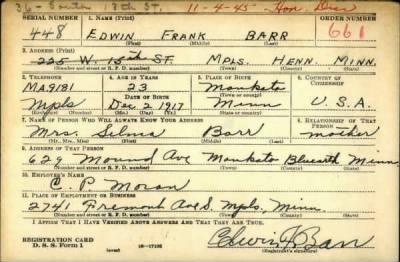 36 - South 13th St. 11-4-45 - Hon. Disc
SERIAL NUMBER 1. NAME (Print) ORDER NUMBER
448 EDWIN FRANK BARR 661
(First) (Middle) (Last)
3. ADDRESS (Print)
225 W. 15th ST. MPLS. HENN. MINN.
(Number and street or R. F. D. number) (Town) (County) (State)
3. TELEPHONE 4. AGE IN YEARS 5. PLACE OF BIRTH 6. COUNTRY OF CITIZENSHIP
MA9181 23 Mankato
DATE OF BIRTH (Town or county)
Mpls Dec 2 1917 Minn U.S.A.
(Exchange) (Number) (Mo.) (Day) (Yr.) (State or country)
7. NAME OF PERSON WHO WILL ALWAYS KNOW YOUR ADDRESS 8. RELATIONSHIP OF THAT PERSON
Mrs. Selma Barr mother
(Mr., Mrs., Miss) (First) (Middle) (Last)
9. ADDRESS OF THAT PERSON
629 Mound Ave Mankato Bluearth Minn
(Number and street or R. F. D. number) (Town) (County) (State)
10. EMPLOYER'S NAME
C. P. Moran
11. PLACE OF EMPLOYMENT OR BUSINESS
2741 Fremont Ave S. Mpls, Minn
(Number and street or R. F. D. number) (Town) (County) (State)
I AFFIRM THAT I HAVE VERIFIED ABOVE ANSWERS AND THAT THEY ARE TRUE.
REGISTRATION CARD
D. S. S. Form 1 16-17105 Edwin F. Barr
(over) (Registrant's signature)